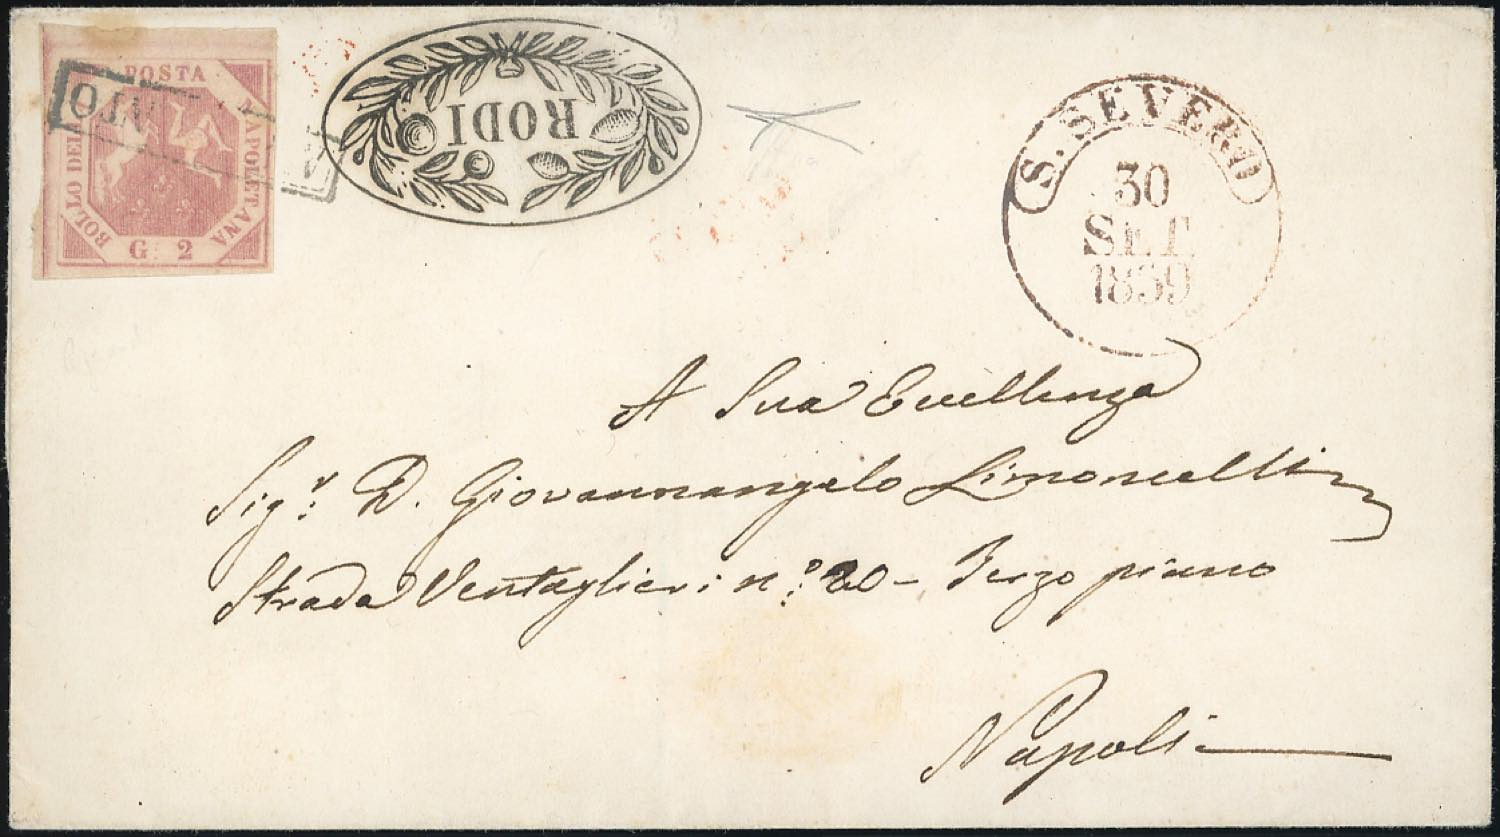 POSTA
NAPOLETANA
BOLLO DELLA
G. 2
RODI
S. SEVERO
30
SET
1859
A Sua Eccellenza
Sigr: D. Giovannangelo Limoncelli
Strada Ventaglieri n.° 20 - Terzo piano
Napoli